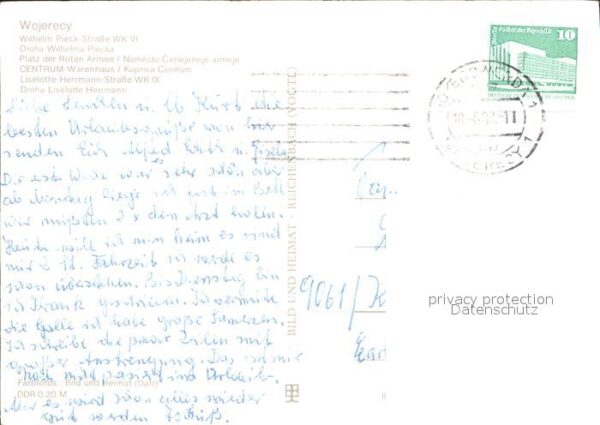 Wojerecy
Wilhelm Pieck-Straße WK VI
Droha Wilhelma Piecka
Platz der Roten Armee / Naměsto Čerwjeneje armeje
CENTRUM-Warenhaus / Kupnica Centrum
Liselotte-Herrmann-Straße WK IX
Droha Liselotte Herrmann
Liebe Familien u. die
besten Urlaubsgrüße von hier
senden Euch Alfred Edith u. Gisela
Die erste Woche war sehr schön aber
ab Montag liege ich jetzt im Bett
wir mußten 2 x den Arzt holen.
Heute will ich nun heim es sind
nur 2 St. Fahrzeit ich werde es
schon überstehen. Bis Dienstag bin
ich Krank geschrieben. Ich vermute
die Galle ich habe große Schmerzen.
Ich schreibe die paar Zeilen mit
großer Anstrengung. Das ist mir
noch nie passiert im Urlaub.
Aber es wird schon alles wieder
gut werden Tschüß.
Farbfotos: Bild und Heimat (Darr)
DDR 0,20 M
BILD UND HEIMAT · REICHENBACH (VOGTL)
Berlin, Palast der Republik
10
DEUTSCHE DEMOKRATISCHE REPUBLIK
HOYERSWERDA 1
WOJERECY 1
9661/
privacy protection
Datenschutz